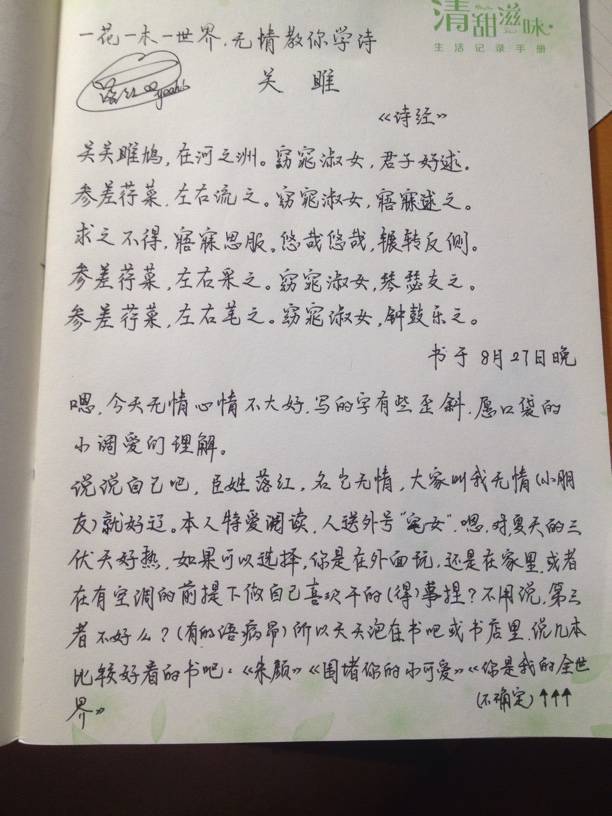 清甜滋味
生活记录手册
一花一木一世界.无情教你学诗
落红
关雎
《诗经》
关关雎鸠,在河之洲。窈窕淑女,君子好逑.
参差荇菜.左右流之。窈窕淑女,寤寐逑之。
求之不得,寤寐思服。悠哉悠哉,辗转反侧。
参差荇菜,左右采之。窈窕淑女,琴瑟友之。
参差荇菜,左右芼之。窈窕淑女,钟鼓乐之。
书于8月27日晚
嗯,今天无情心情不大好.写的字有些歪斜.愿口袋的
小调爱们理解。
说说自己吧,臣姓落红,名它无情,大家叫我无情(小朋
友)就好辽。本人特爱阅读,人送外号"宅女".嗯.对夏天的三
伏天好热,如果可以选择,你是在外面玩,还是在家里.或者
在有空调的前提下做自己喜欢干的(得)事捏?不用说,第三
者不好么?(有的语病昂)所以天天泡在书吧或书店里.说几本
比较好看的书吧.《朱颜》《围堵你的小可爱》《你是我的全世
界》
(不确定)↑↑↑